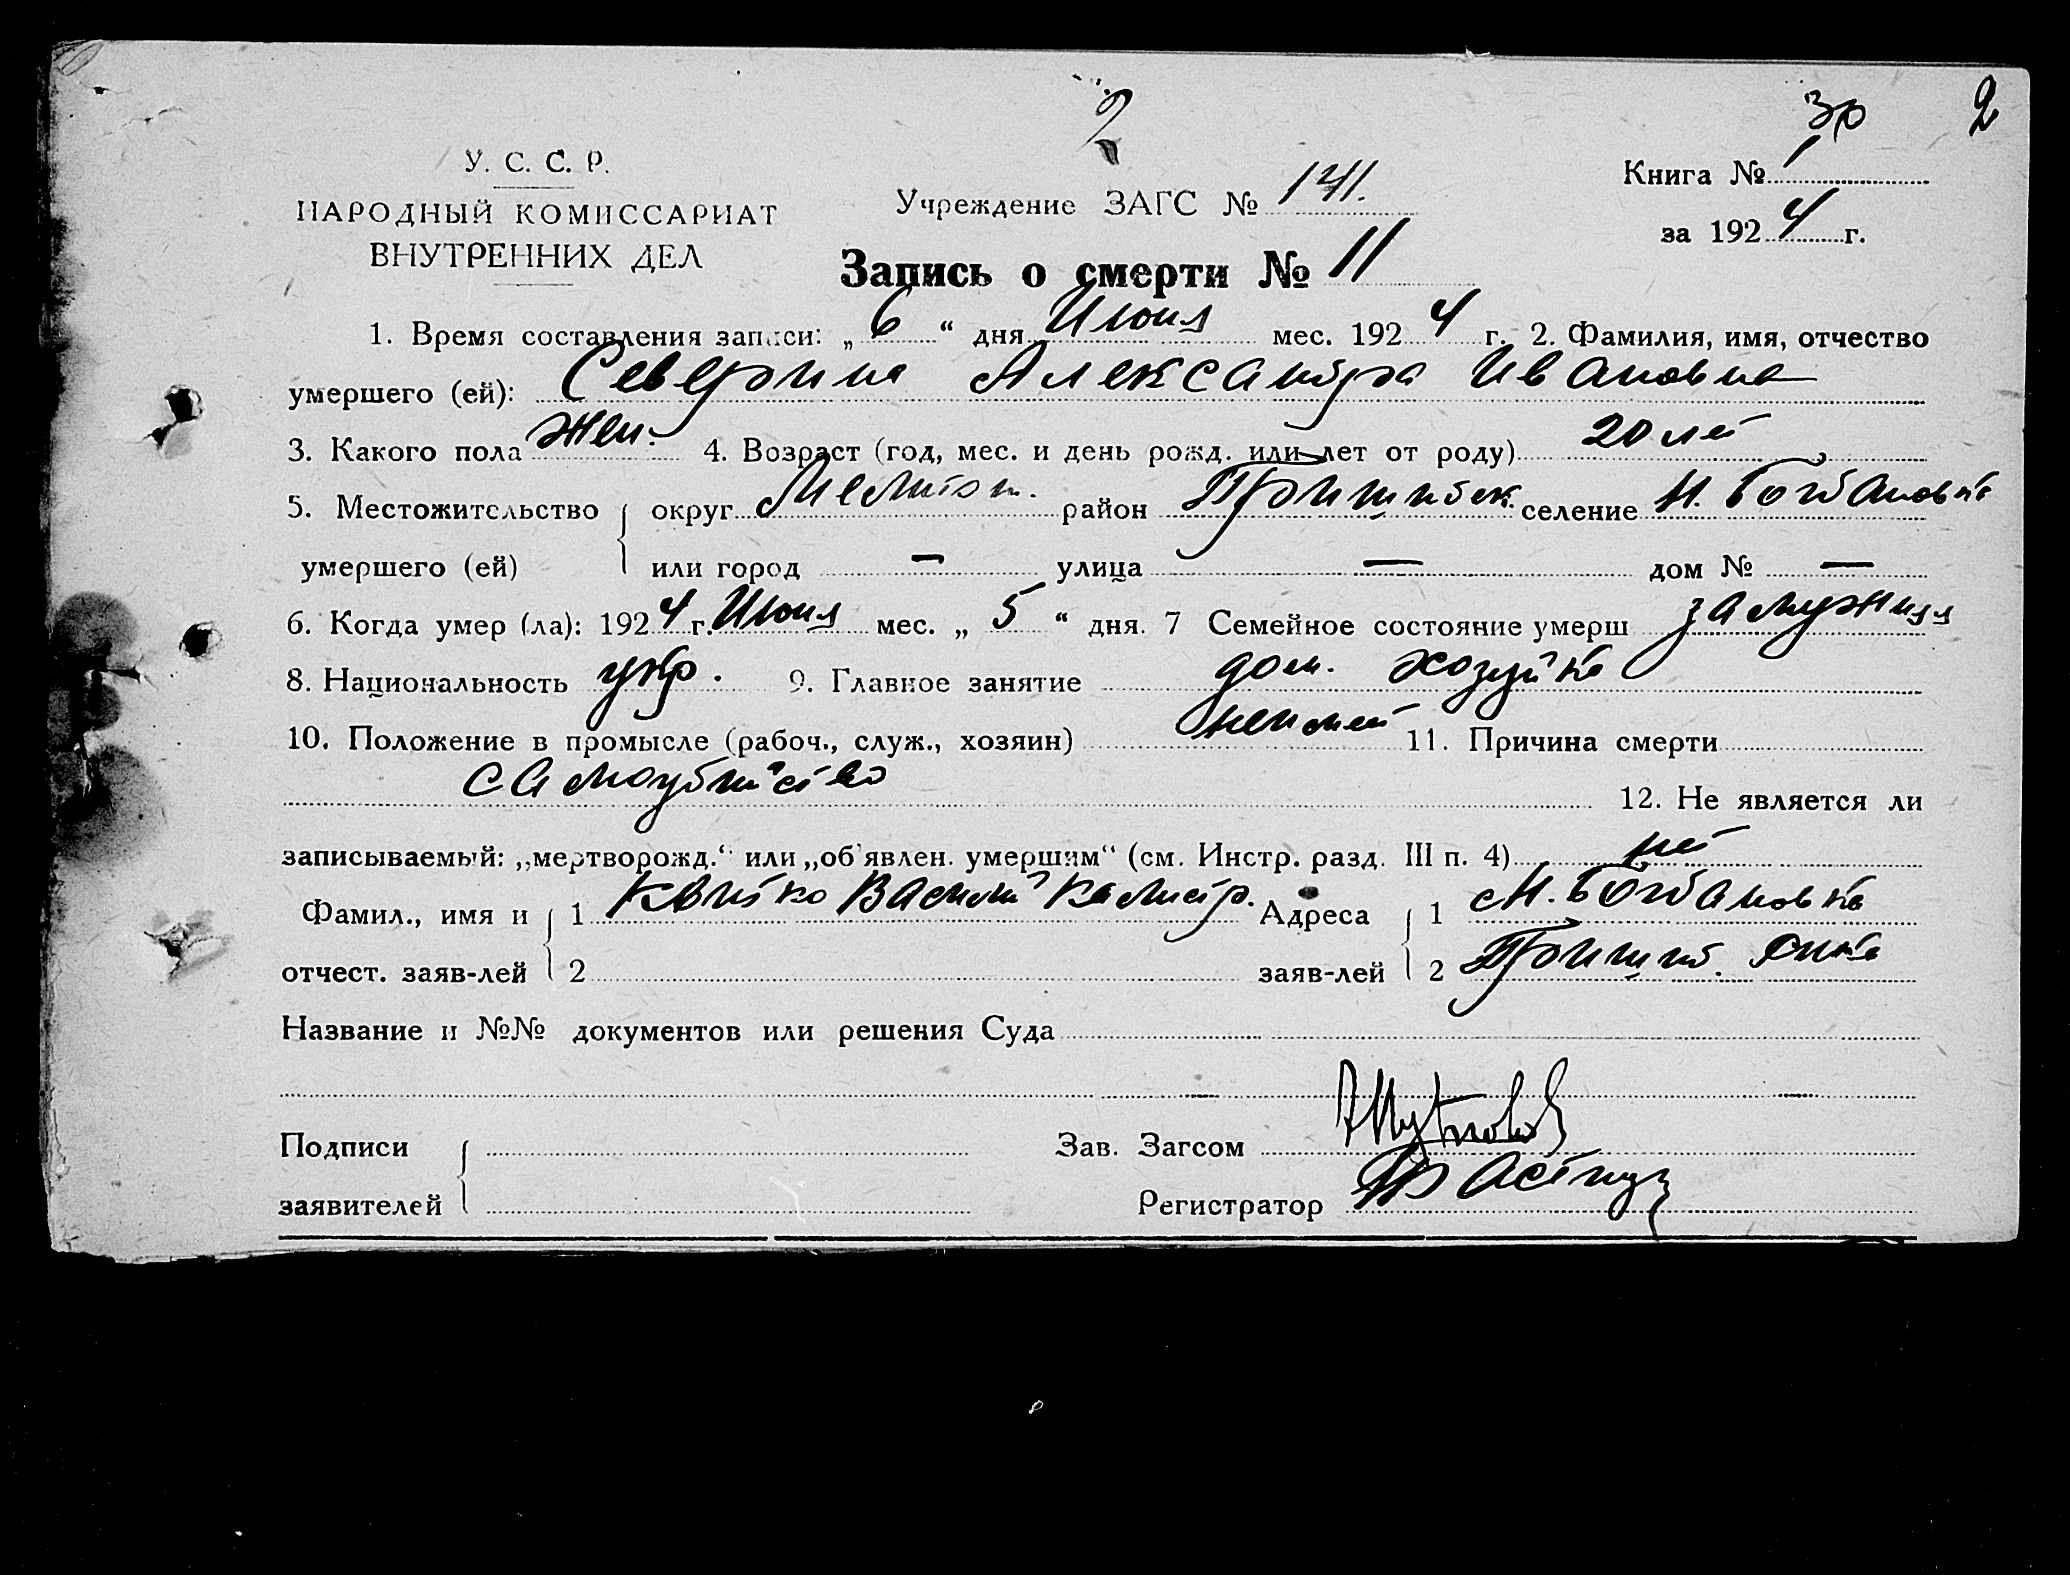 2
30
2
У. С. С. Р.
НАРОДНЫЙ КОМИССАРИАТ
ВНУТРЕННИХ ДЕЛ
Учреждение ЗАГС № 141.
Книга № 1
за 1924 г.
Запись о смерти № 11
1. Время составления записи: „6“ дня Июля мес. 1924 г. 2. Фамилия, имя, отчество
умершего (ей): Северина Александра Ивановна
3. Какого пола Жен. 4. Возраст (год, мес. и день рожд. или лет от роду) 20 лет
5. Местожительство округ Мелитоп. район Пришибск. селение М. Богдановка
умершего (ей) или город — улица — дом № —
6. Когда умер (ла): 1924 г. Июля мес. „5“ дня. 7 Семейное состояние умерш замужняя
8. Национальность укр. 9. Главное занятие дом. хозяйка
10. Положение в промысле (рабоч., служ., хозяин) 11. Причина смерти
самоубийство 12. Не является ли
записываемый: „мертворожд.“ или „об'явлен. умершим“ (см. Инстр. разд. III п. 4) нет
Фамил., имя и 1 Квитко Василий Адреса 1 М. Богдановка
отчест. заяв-лей 2 заяв-лей 2 Пришиб. р-на
Название и №№ документов или решения Суда
Подписи Зав. Загсом
заявителей Регистратор